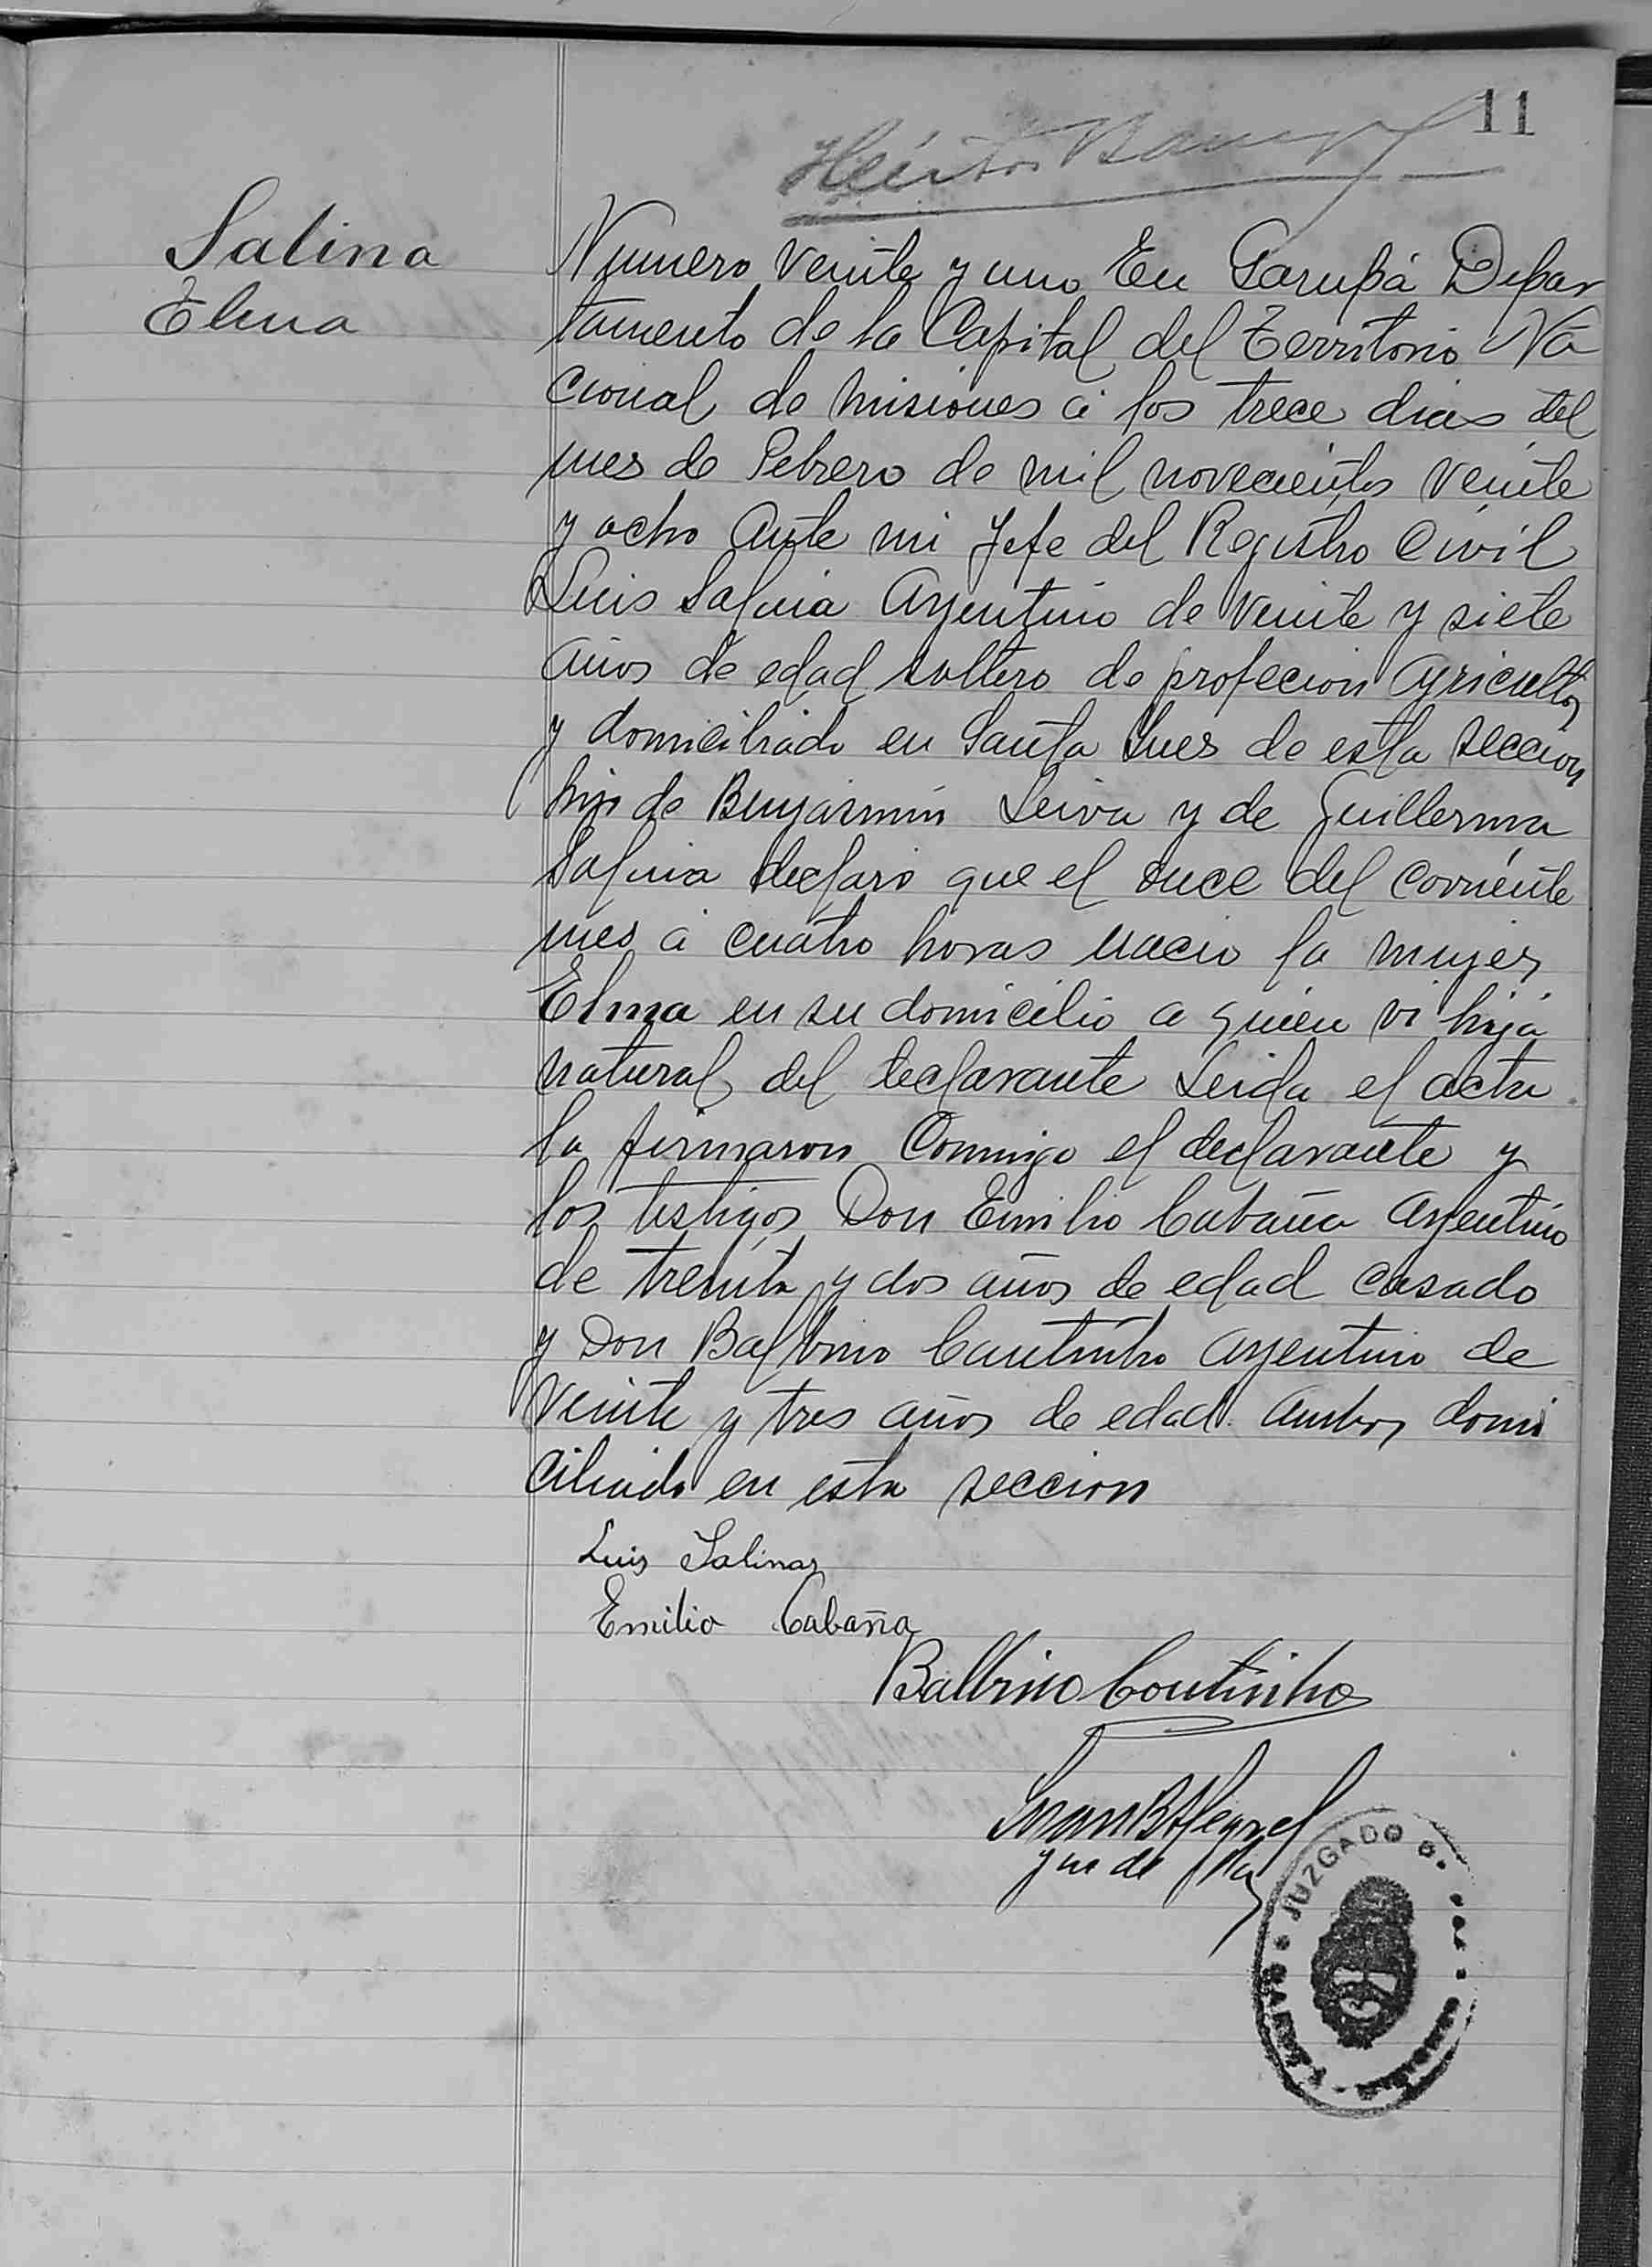 11
Héctor
Salina
Elma
Numero veinte y uno En Garupá Depar
tamento de la Capital del Territorio Na
cional de Misiones á los trece dias del
mes de Febrero de mil novecientos veinte
y ocho Ante mi Jefe del Registro Civil
Luis Salina Argentino de veinte y siete
años de edad soltero de profecion agricultor
y domiciliado en Santa Ines de esta seccion
hijo de Benjasmin Leiva y de Guillerma
Salina declaro que el once del corriente
mes á cuatro horas nacio la mujer
Elma en su domicilio a quien vi hija
natural del declarante Leida el acta
la firmaron Conmigo el declarante y
los testigos Don Emilio Cabaña Argentino
de treinta y dos años de edad casado
y Don Balbino Cautinho Argentino de
veinte y tres años de edad ambos domi
ciliado en esta seccion
Luis Salinas
Emilio Cabaña
Balbino Coutinho
Juan B
Juez de Paz
JUZGADO